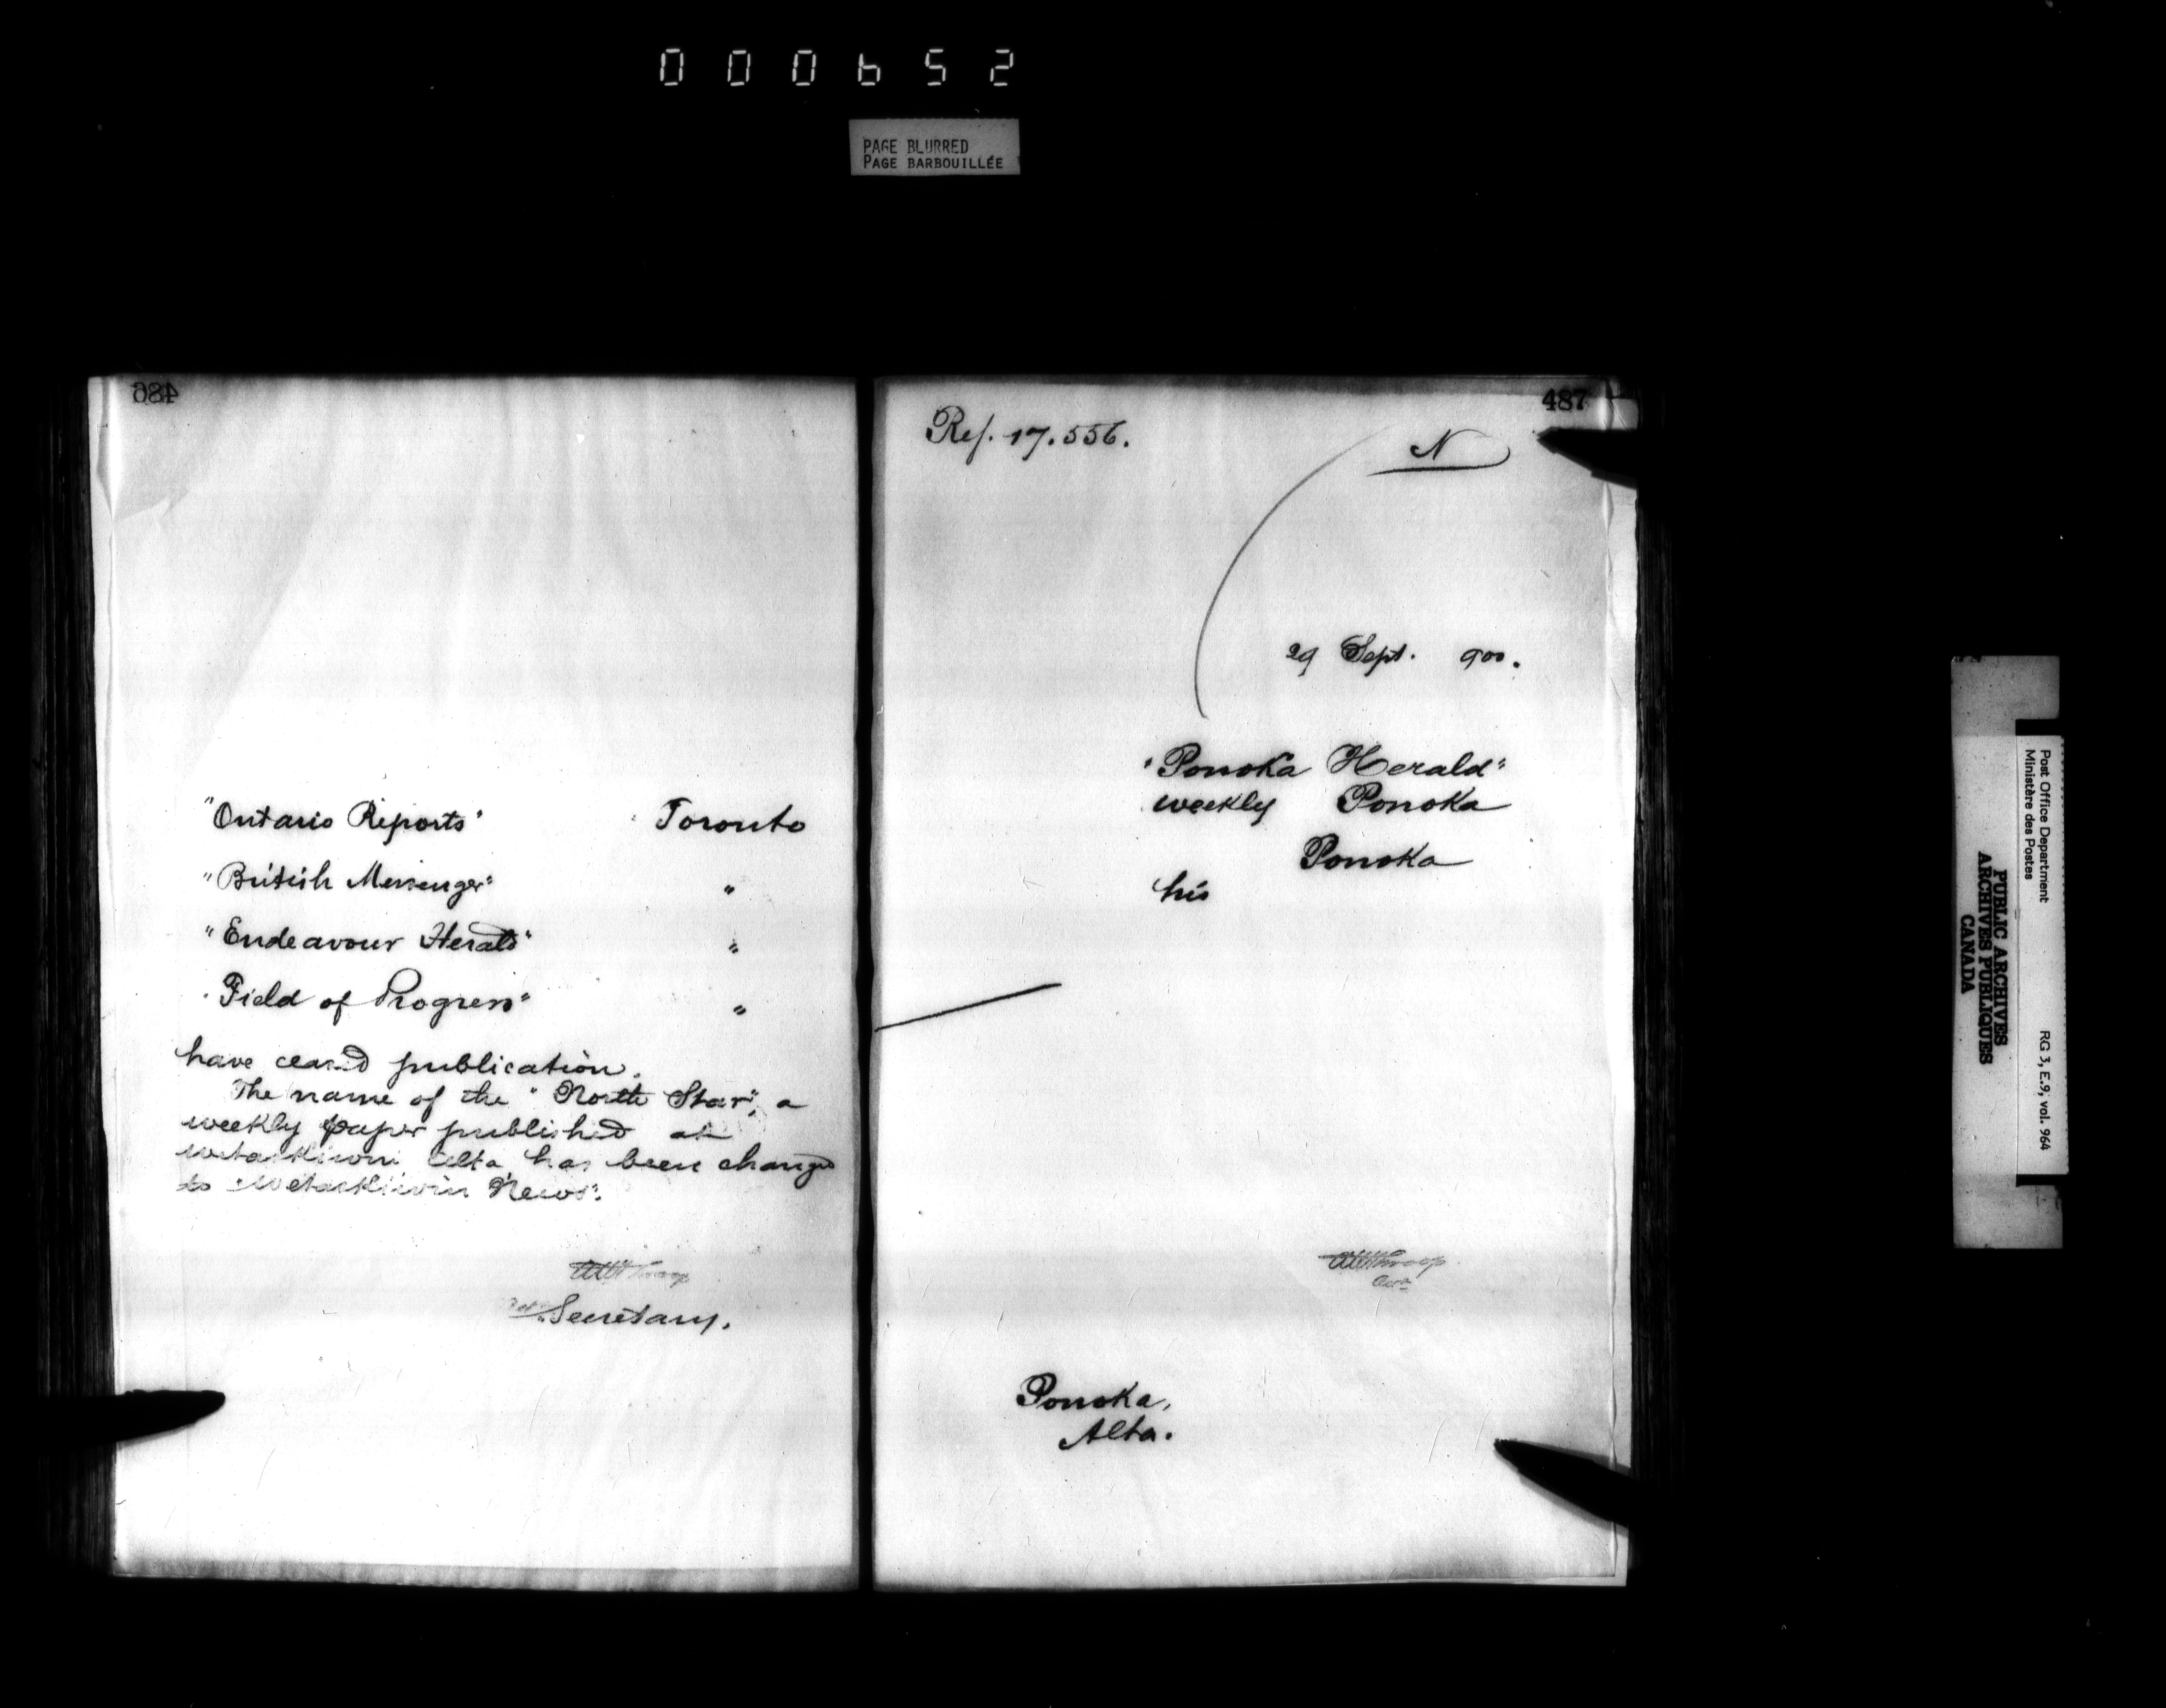 000652
PAGE BLURRED
PAGE BARBOUILLÉE
486
"Ontario Reports" Toronto
"British Messenger" "
"Endeavour Herald" "
"Field of Progress" "
have ceased publication.
The name of the "North Star", a
weekly paper published at
Wetaskiwin Alta, has been changed
to "Wetaskiwin News".
Secretary.
487
Ref. 17.556.
N
29 Sept. 900.
"Ponoka Herald"
weekly Ponoka
Ponoka
his
Ponoka,
Alta.
Post Office Department
Ministère des Postes
RG 3, E.9, vol. 964
PUBLIC ARCHIVES
ARCHIVES PUBLIQUES
CANADA